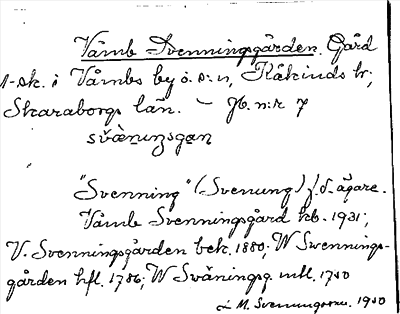 Våmb-Svenningsgården. Gård
1. sk. i Våmbs by o. s:n, Kåkinds hd;
Skaraborgs län. – Jb. n:r 7
svèniŋsgaɳ
"Svenning" (Svenung) f. d. ägare.
Våmb Svenningsgård kb. 1931;
V. Svenningsgården bek. 1880; W Swennings-
gården hfl. 1786; W Swäningsg. mtl. 1750
L. M. Svenungsson. 1950